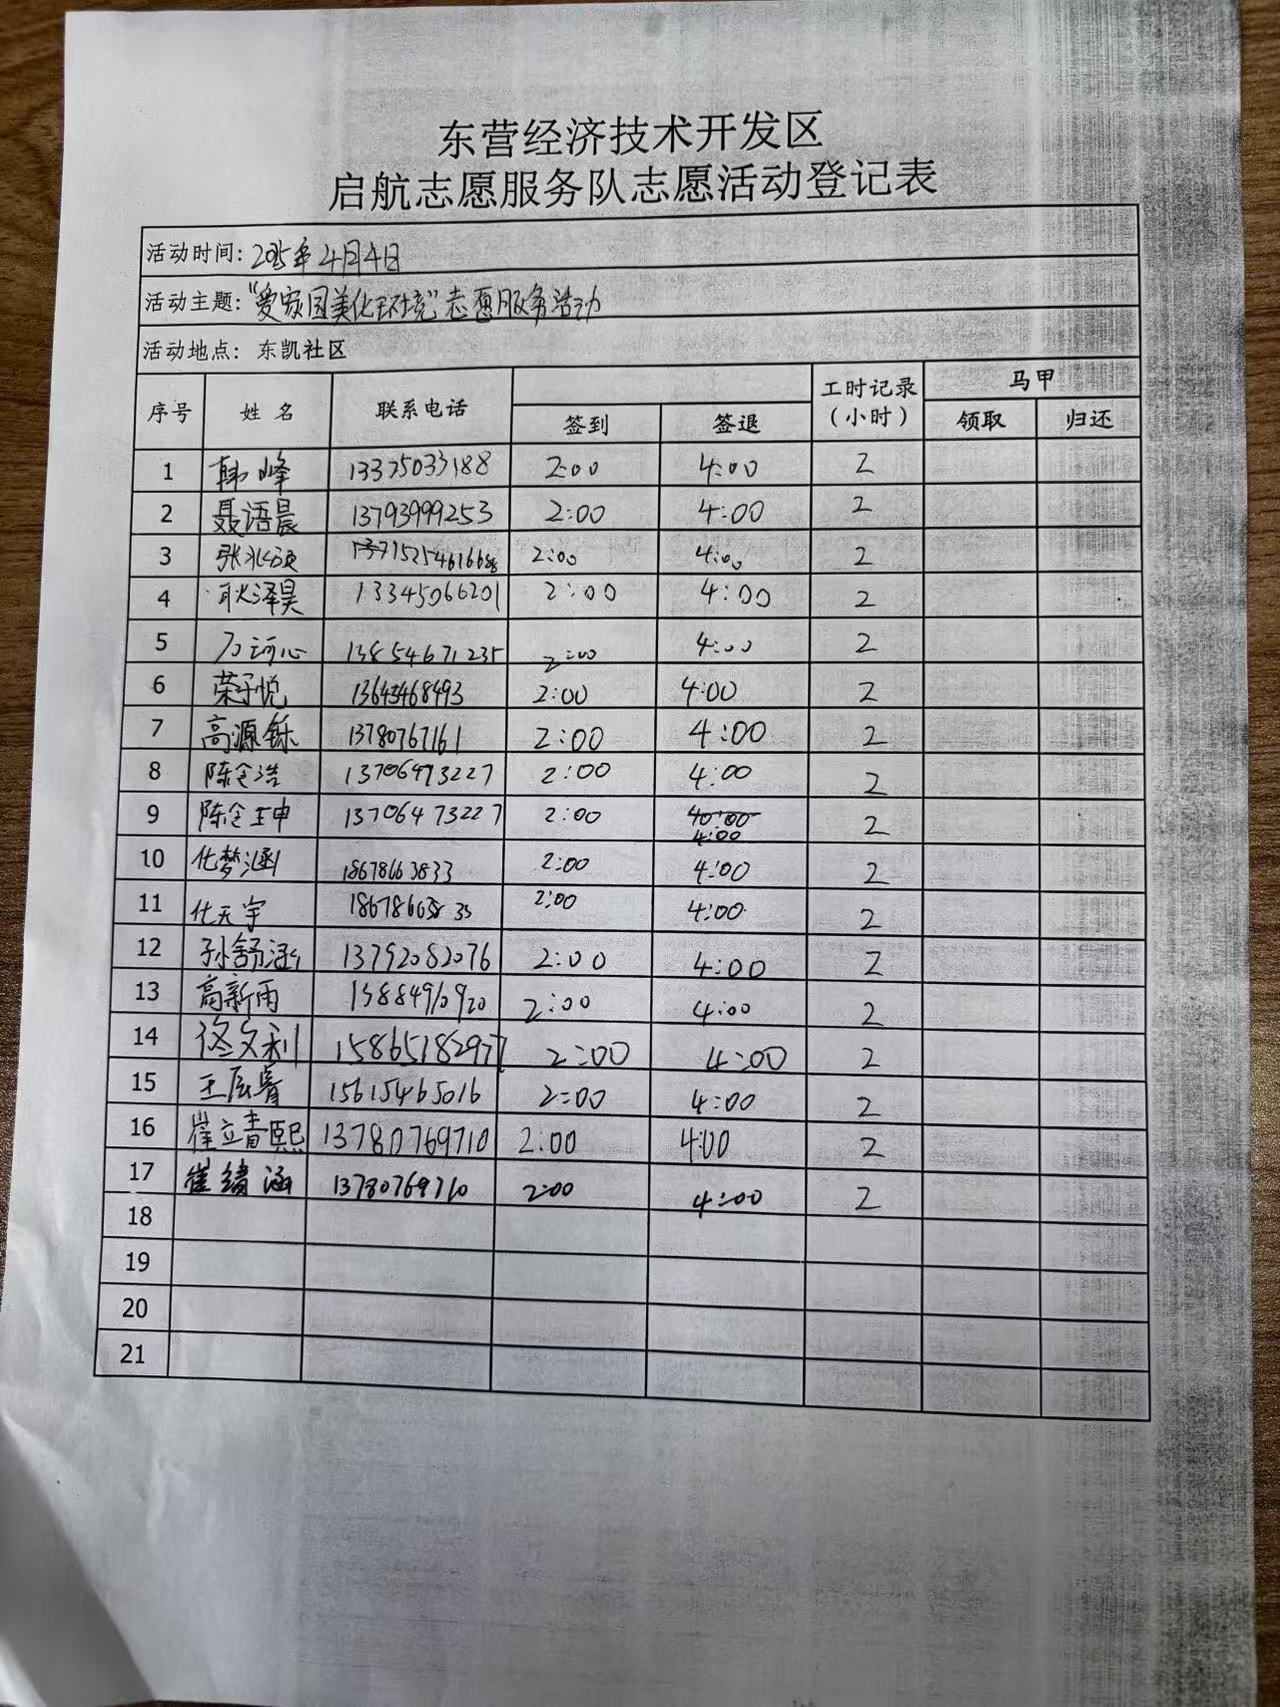 东营经济技术开发区
启航志愿服务队志愿活动登记表
活动时间：2025年4月4日
活动主题："爱家园美化环境"志愿服务活动
活动地点：东凯社区
序号 姓名 联系电话 签到 签退 工时记录（小时） 马甲 领取 归还
1 韩峰 13375033188 2:00 4:00 2
2 聂语晨 13793999253 2:00 4:00 2
3 2:00 4:00 2
4 耿泽昊 13345066201 2:00 4:00 2
5 13854671235 2:00 4:00 2
6 荣子悦 13643468493 2:00 4:00 2
7 高源铄 13780767161 2:00 4:00 2
8 陈仝浩 13706473227 2:00 4:00 2
9 13706473227 2:00 4:00 2
10 化梦涵 18678663833 2:00 4:00 2
11 化天宇 2:00 4:00 2
12 孙舒涵 13792082076 2:00 4:00 2
13 高新雨 13884910920 2:00 4:00 2
14 徐文利 15865182977 2:00 4:00 2
15 王辰睿 15615465016 2:00 4:00 2
16 崔立青熙 13780769710 2:00 4:00 2
17 崔绪涵 13780769710 2:00 4:00 2
18
19
20
21